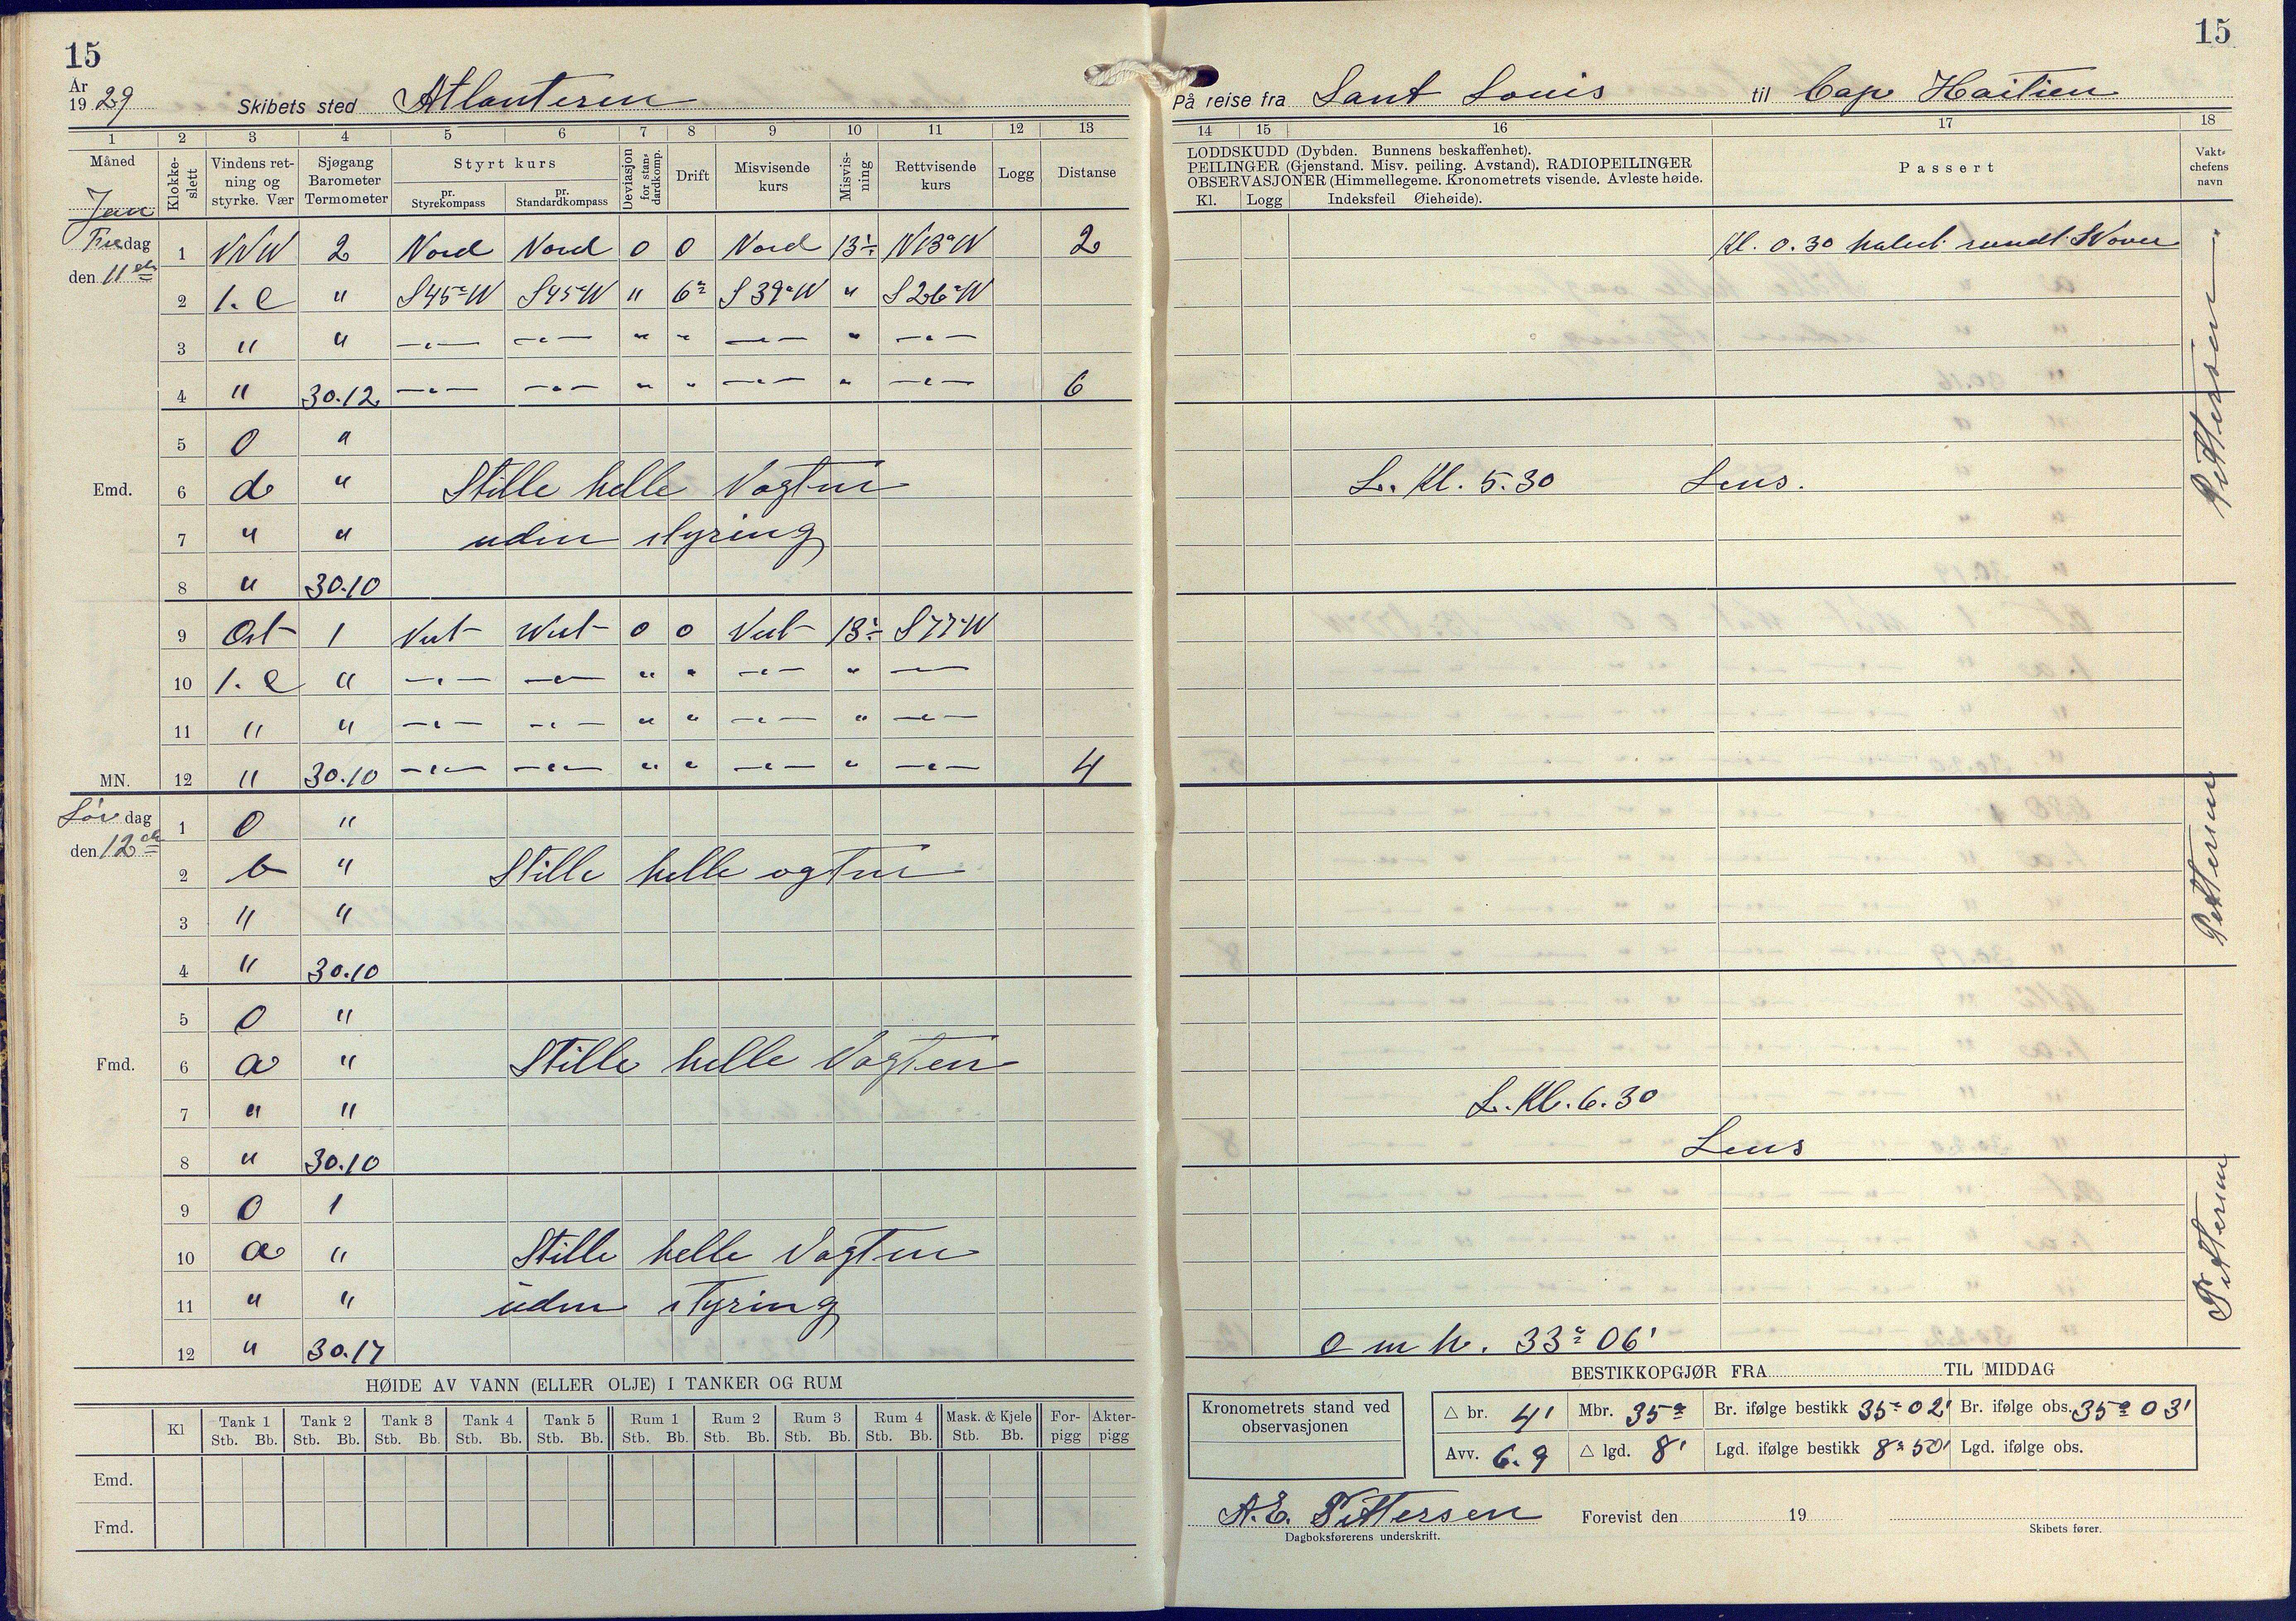 15
År
1929 Skibets sted Atlanteren
1 2 3 4 5 6 7 8 9 10 11 12 13
Måned Klokke-slett Vindens ret-ning og styrke. Vær Sjøgang Barometer Termometer Styrt kurs pr. Styrekompass pr. Standardkompass Deviasjon for stan-dardkomp. Drift Misvisende kurs Misvis-ning Rettvisende kurs Logg Distanse
Jan
Fredag 1 VNW 2 Nord Nord 0 0 Nord 13°÷ N13°W 2
den 11te 2 1. c " S45°W S45°W " 6° S39°W " S26°W
3 " " —"— —"— " " —"— " —"—
4 " 30.12 —"— —"— " " —"— " —"— 6
5 0 "
Emd. 6 d " Stille helle Vagten
7 " " uden styring
8 " 30.10
9 Ost 1 Vest West 0 0 Vest 13°÷ S77°W
10 1. c " —"— —"— " " —"— " —"—
11 " " —"— —"— " " —"— " —"—
MN. 12 " 30.10 —"— —"— " " —"— " —"— 4
Lør dag 1 0 "
den 12te 2 b " Stille helle ogten
3 " "
4 " 30.10
5 0 "
Fmd. 6 a " Stille helle Vagten
7 " "
8 " 30.10
9 0 1
10 a " Stille helle Vagten
11 " " uden styring
12 " 30.17
HØIDE AV VANN (ELLER OLJE) I TANKER OG RUM
Kl Tank 1 Tank 2 Tank 3 Tank 4 Tank 5 Rum 1 Rum 2 Rum 3 Rum 4 Mask. & Kjele For-pigg Akter-pigg
Stb. Bb. Stb. Bb. Stb. Bb. Stb. Bb. Stb. Bb. Stb. Bb. Stb. Bb. Stb. Bb. Stb. Bb. Stb. Bb.
Emd.
Fmd.
15
På reise fra Sant Louis til Cap Haitien
14 15 16 17 18
LODDSKUDD (Dybden. Bunnens beskaffenhet).
PEILINGER (Gjenstand. Misv. peiling. Avstand). RADIOPEILINGER
OBSERVASJONER (Himmellegeme. Kronometrets visende. Avleste høide.
Kl. Logg Indeksfeil Øiehøide).
Passert
Vakt-chefens navn
Kl. 0.30 halut rundt
Pettersen
L. Kl. 5.30 Lens.
Pettersen
L. Kl. 6.30
Lens
Pettersen
o m h. 33° 06'
BESTIKKOPGJØR FRA TIL MIDDAG
Kronometrets stand ved observasjonen
△ br. 4' Mbr. 35° Br. ifølge bestikk 35° 02' Br. ifølge obs. 35° 03'
Avv. 6.9 △ lgd. 8' Lgd. ifølge bestikk 8° 50' Lgd. ifølge obs.
A.E. Pettersen Forevist den 19
Dagboksførerens underskrift. Skibets fører.